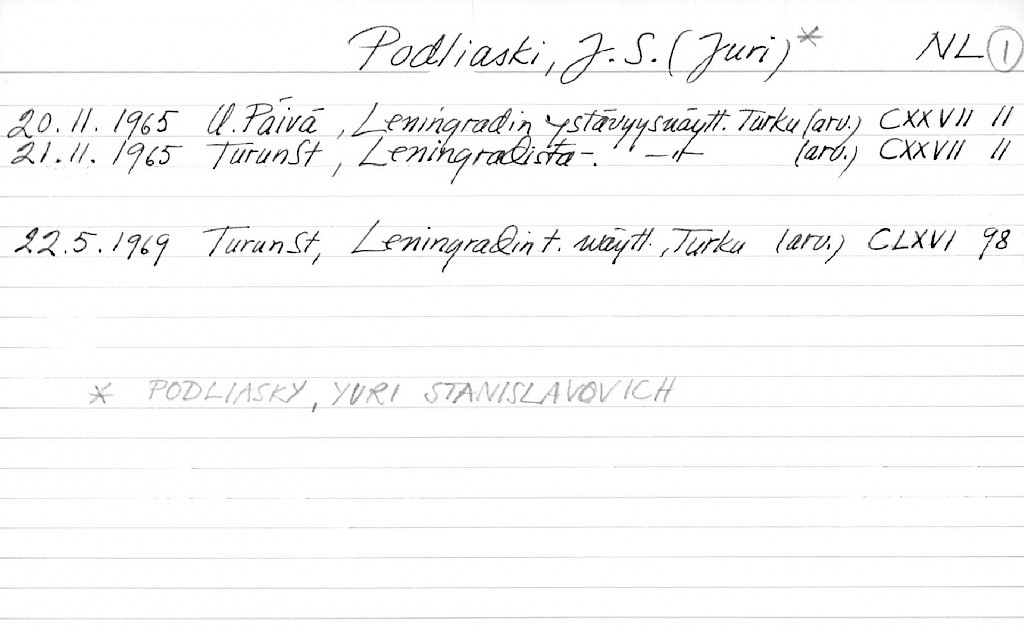 Podliaski, J. S. (Juri)* NL 1
20.11.1965 U. Päivä, Leningradin ystävyysnäytt. Turku (arv.) CXXVII 11
21.11.1965 TurunSt, Leningradista-. -"- (arv.) CXXVII 11
22.5.1969 TurunSt, Leningradin t. näytt., Turku (arv.) CLXVI 98
* PODLIASKY, YURI STANISLAVOVICH